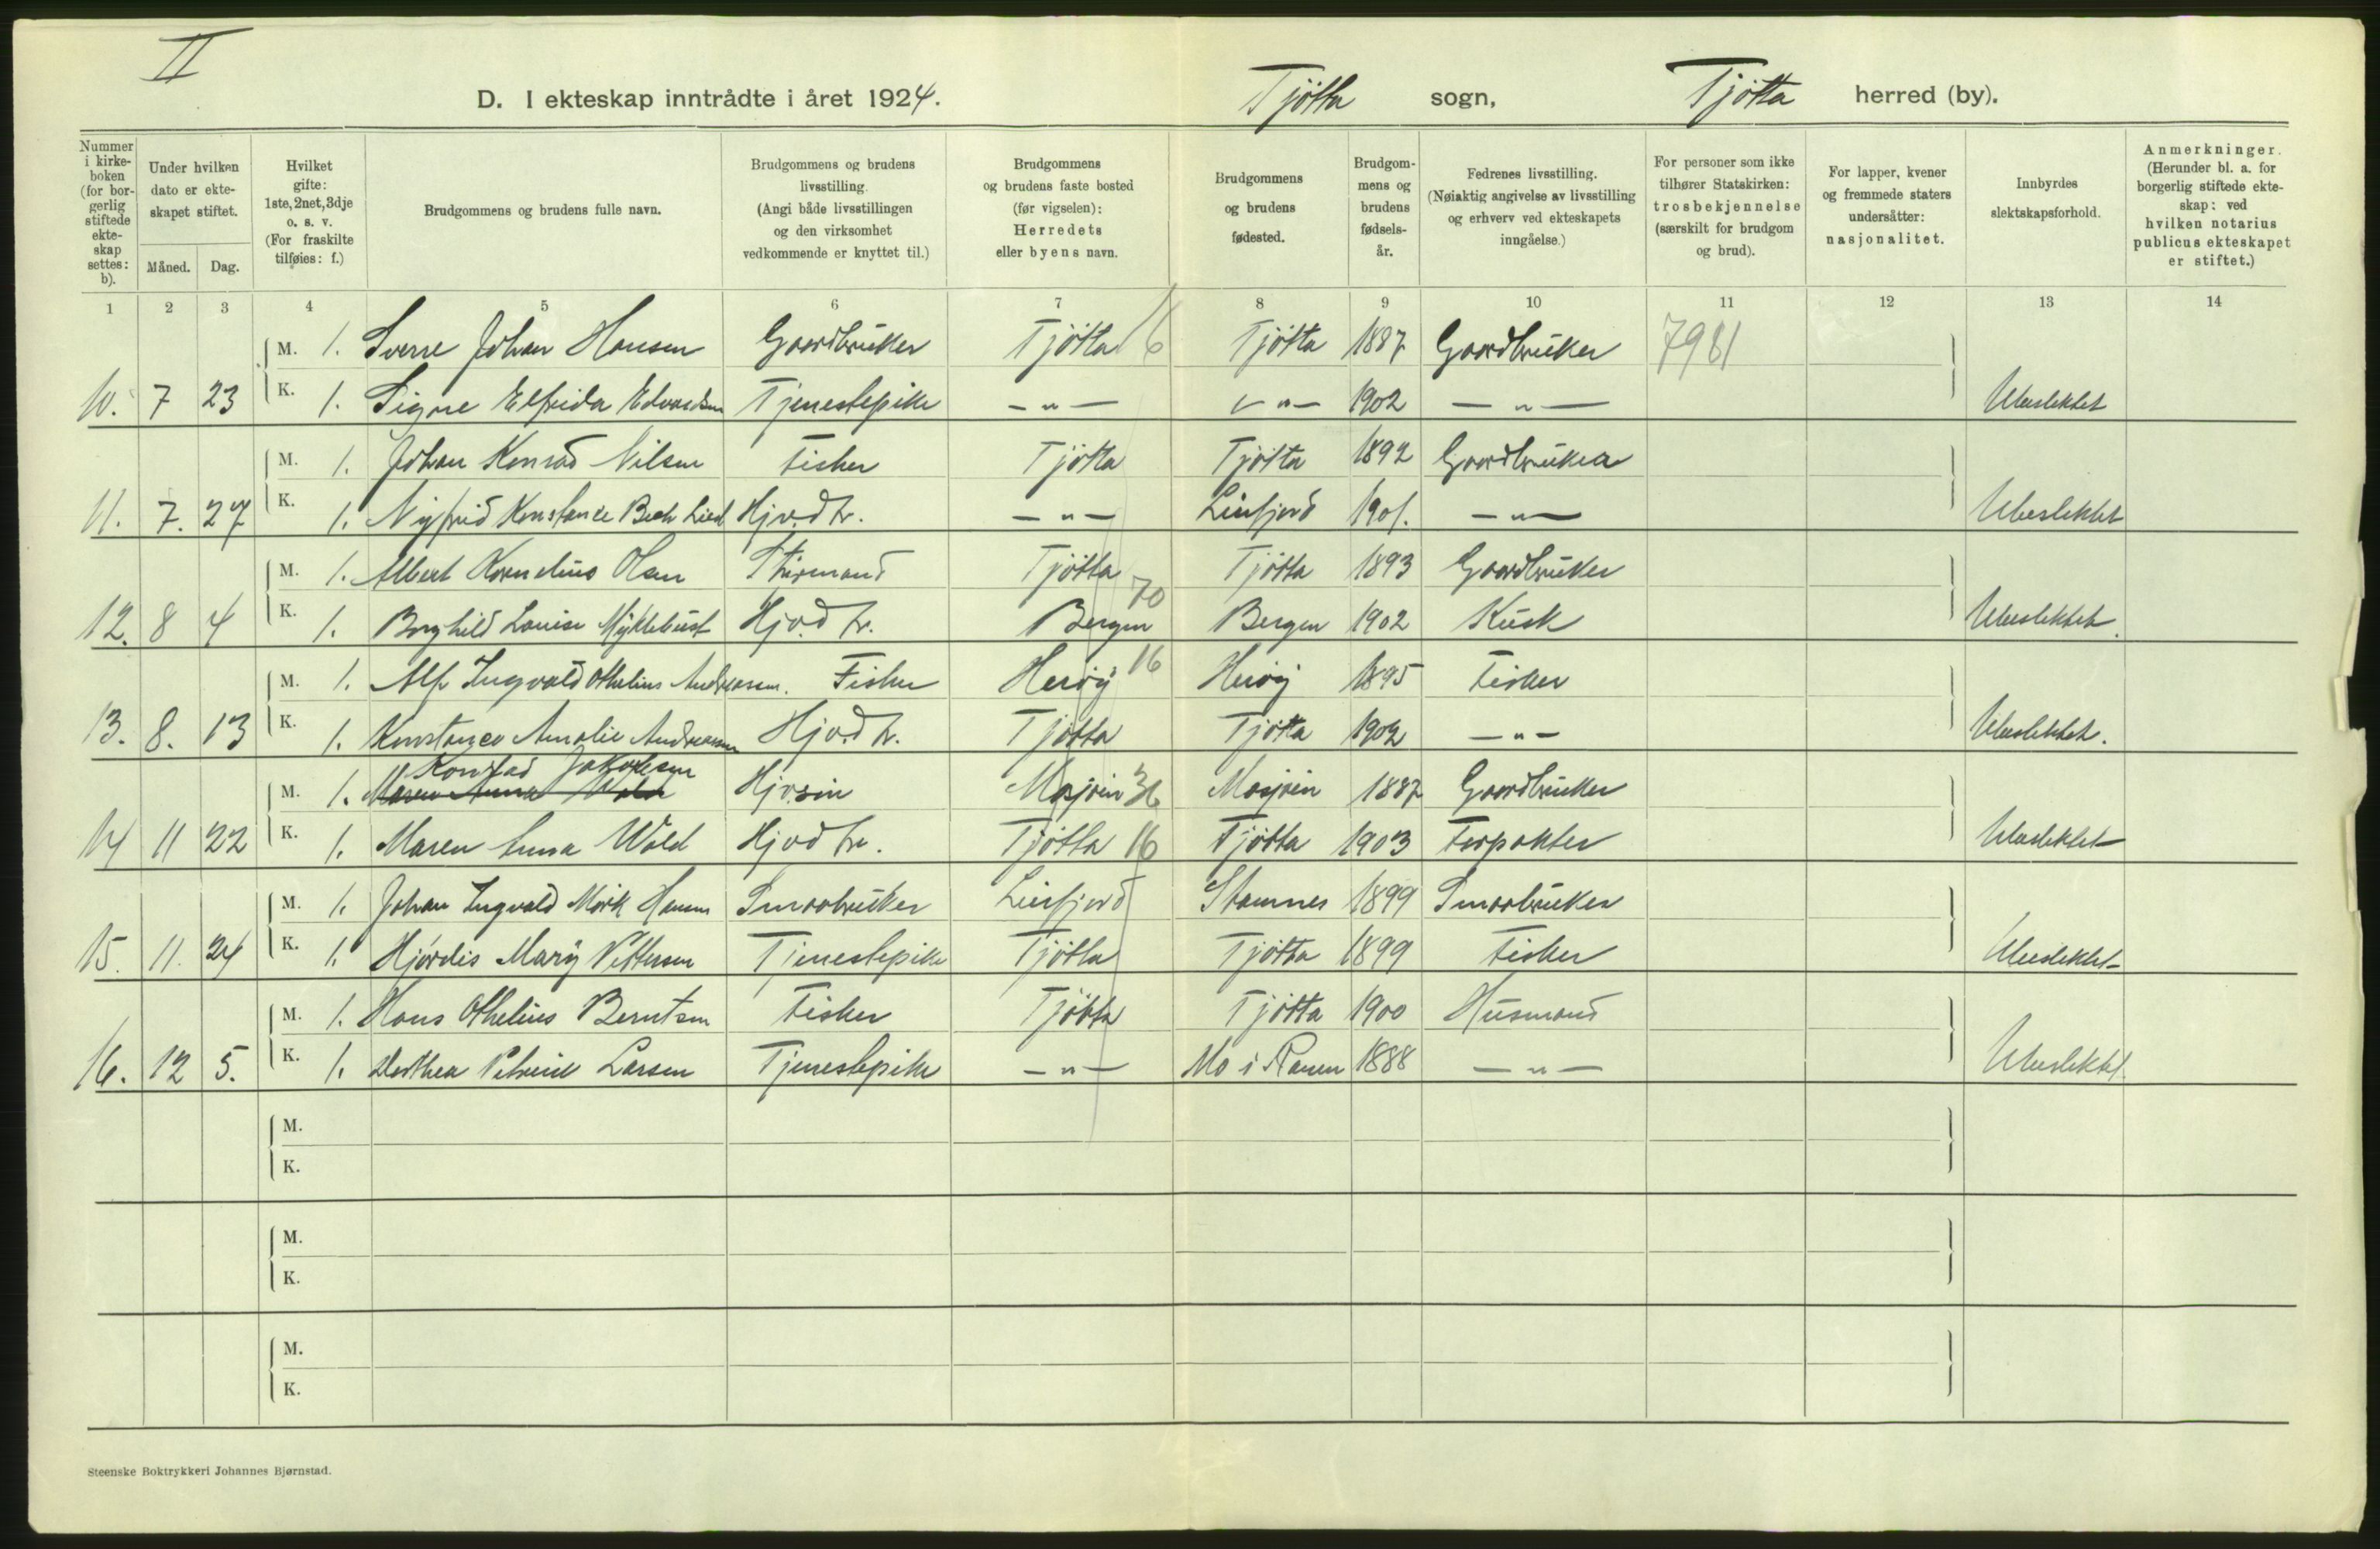 II
D. I ekteskap inntrådte i året 1924. Tjötta sogn, Tjötta herred (by).
Nummer i kirke-boken (for bor-gerlig stiftede ekte-skap settes: b).
Under hvilken dato er ekte-skapet stiftet.
Måned. Dag.
Hvilket gifte: 1ste, 2net, 3dje o. s. v. (For fraskilte tilføies: f.)
Brudgommens og brudens fulle navn.
Brudgommens og brudens livsstilling. (Angi både livsstillingen og den virksomhet vedkommende er knyttet til.)
Brudgommens og brudens faste bosted (før vigselen): Herredets eller byens navn.
Brudgommens og brudens fødested.
Brudgom-mens og brudens fødsels-år.
Fedrenes livsstilling. (Nøiaktig angivelse av livsstilling og erhverv ved ekteskapets inngåelse.)
For personer som ikke tilhører Statskirken: trosbekjennelse (særskilt for brudgom og brud).
For lapper, kvener og fremmede staters undersåtter: nasjonalitet.
Innbyrdes slektskapsforhold.
Anmerkninger. (Herunder bl. a. for borgerlig stiftede ekte-skap: ved hvilken notarius publicus ekteskapet er stiftet.)
1 2 3 4 5 6 7 8 9 10 11 12 13 14
M. 1. Sverre Johan Hansen Gaardbruker Tjötta 16 Tjötta 1887 Gaardbruker 7981
10. 7 23 K. 1. Signe Elfrida Edvardsen Tjenestepike —"— —"— 1902 —"— Ubeslektet
M. 1. Johan Konrad Nilsen Fisker Tjötta Tjötta 1892 Gaardbruker
11. 7. 27 K. 1. Nyfrid Konstance Bech Lied Hjv.d tr. —"— Leirfjord 1901. —"— Ubeslektet
M. 1. Albert Kornelius Olsen Styrmand Tjötta Tjötta 1893 Gaardbruker
12. 8 4 K. 1. Borghild Louise Myklebust Hjv.d tr. Bergen 70 Bergen 1902 Kusk Ubeslektet.
M. 1. Alf Ingvald Othelius Andreassen. Fisker Heröy 16 Heröy 1895 Fisker
13. 8. 13 K. 1. Konstance Amalie Andreassen Hjv.d tr. Tjötta Tjötta 1902 —"— Ubeslektet.
Konrad Jakobsen
M. 1. Maren Anna Wold Hjv.sön Mosjöen 36 Mosjöen 1887 Gaardbruker
14 11 22 K. 1. Maren Anna Wold Hjvd tr. Tjötta 16 Tjötta 1903 Forpakter Ubeslektet
M. 1. Johan Ingvald Mörk Hansen Smaabruker Leirfjord Stamnes 1899 Smaabruker
15. 11. 24 K. 1. Hjördis Mary Pettersen Tjenestepike Tjötta Tjötta 1899 Fisker Ubeslektet
M. 1. Hans Othelius Berntsen Fisker Tjötta Tjötta 1900 Husmand
16. 12 5. K. 1. Dorthea Petrine Larsen Tjenestepike —"— Mo i Ranen 1888 —"— Ubeslektet.
M.
K.
M.
K.
M.
K.
Steenske Boktrykkeri Johannes Bjørnstad.